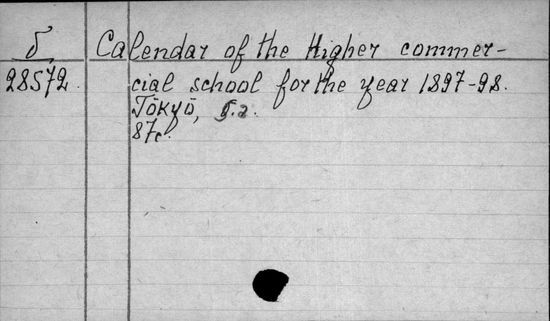 Calendar of the Higher commer-
28572
cial school for the year 1897-98.
Tōkyō,
87c.